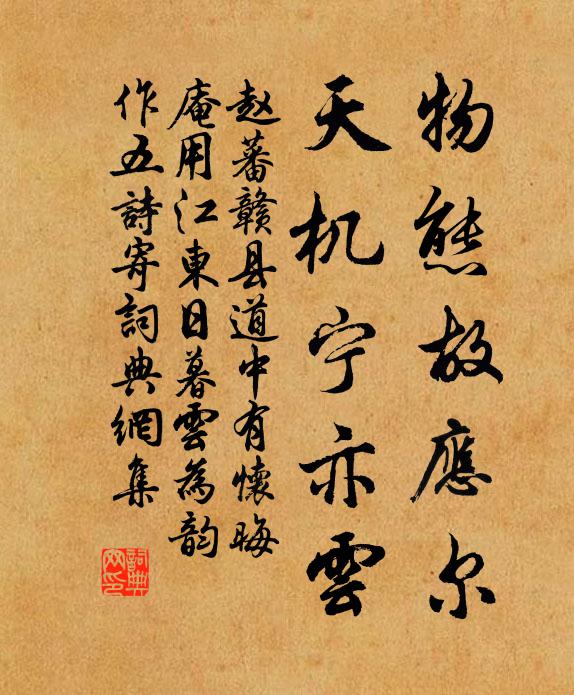 物態故應尔
天机宁亦雲
赵蕃贛县道中有懷晦
庵用江東日暮雲為韵
作五詩寄詞典網集
詞典網印